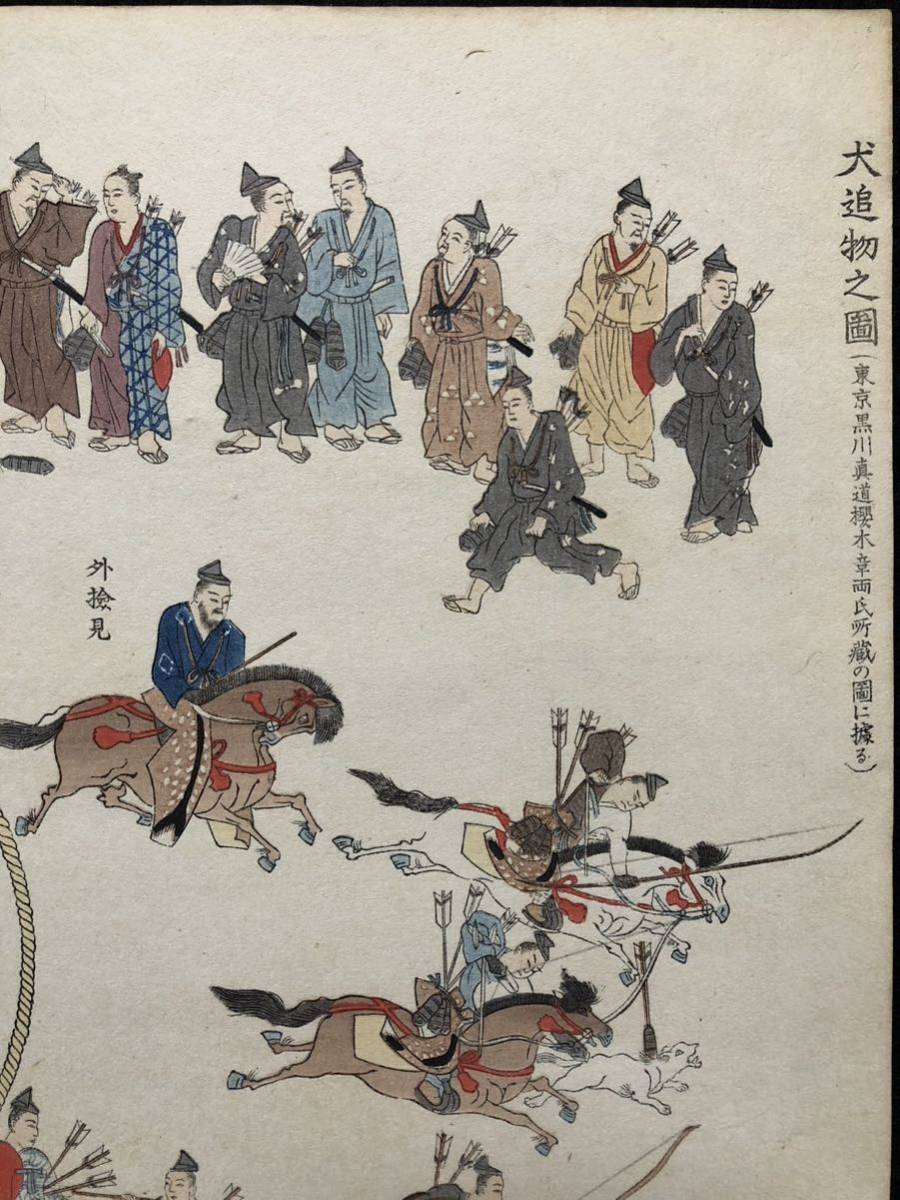 犬追物之圖(東京黒川真道櫻木章両氏所蔵の圖に據る)
外撿見